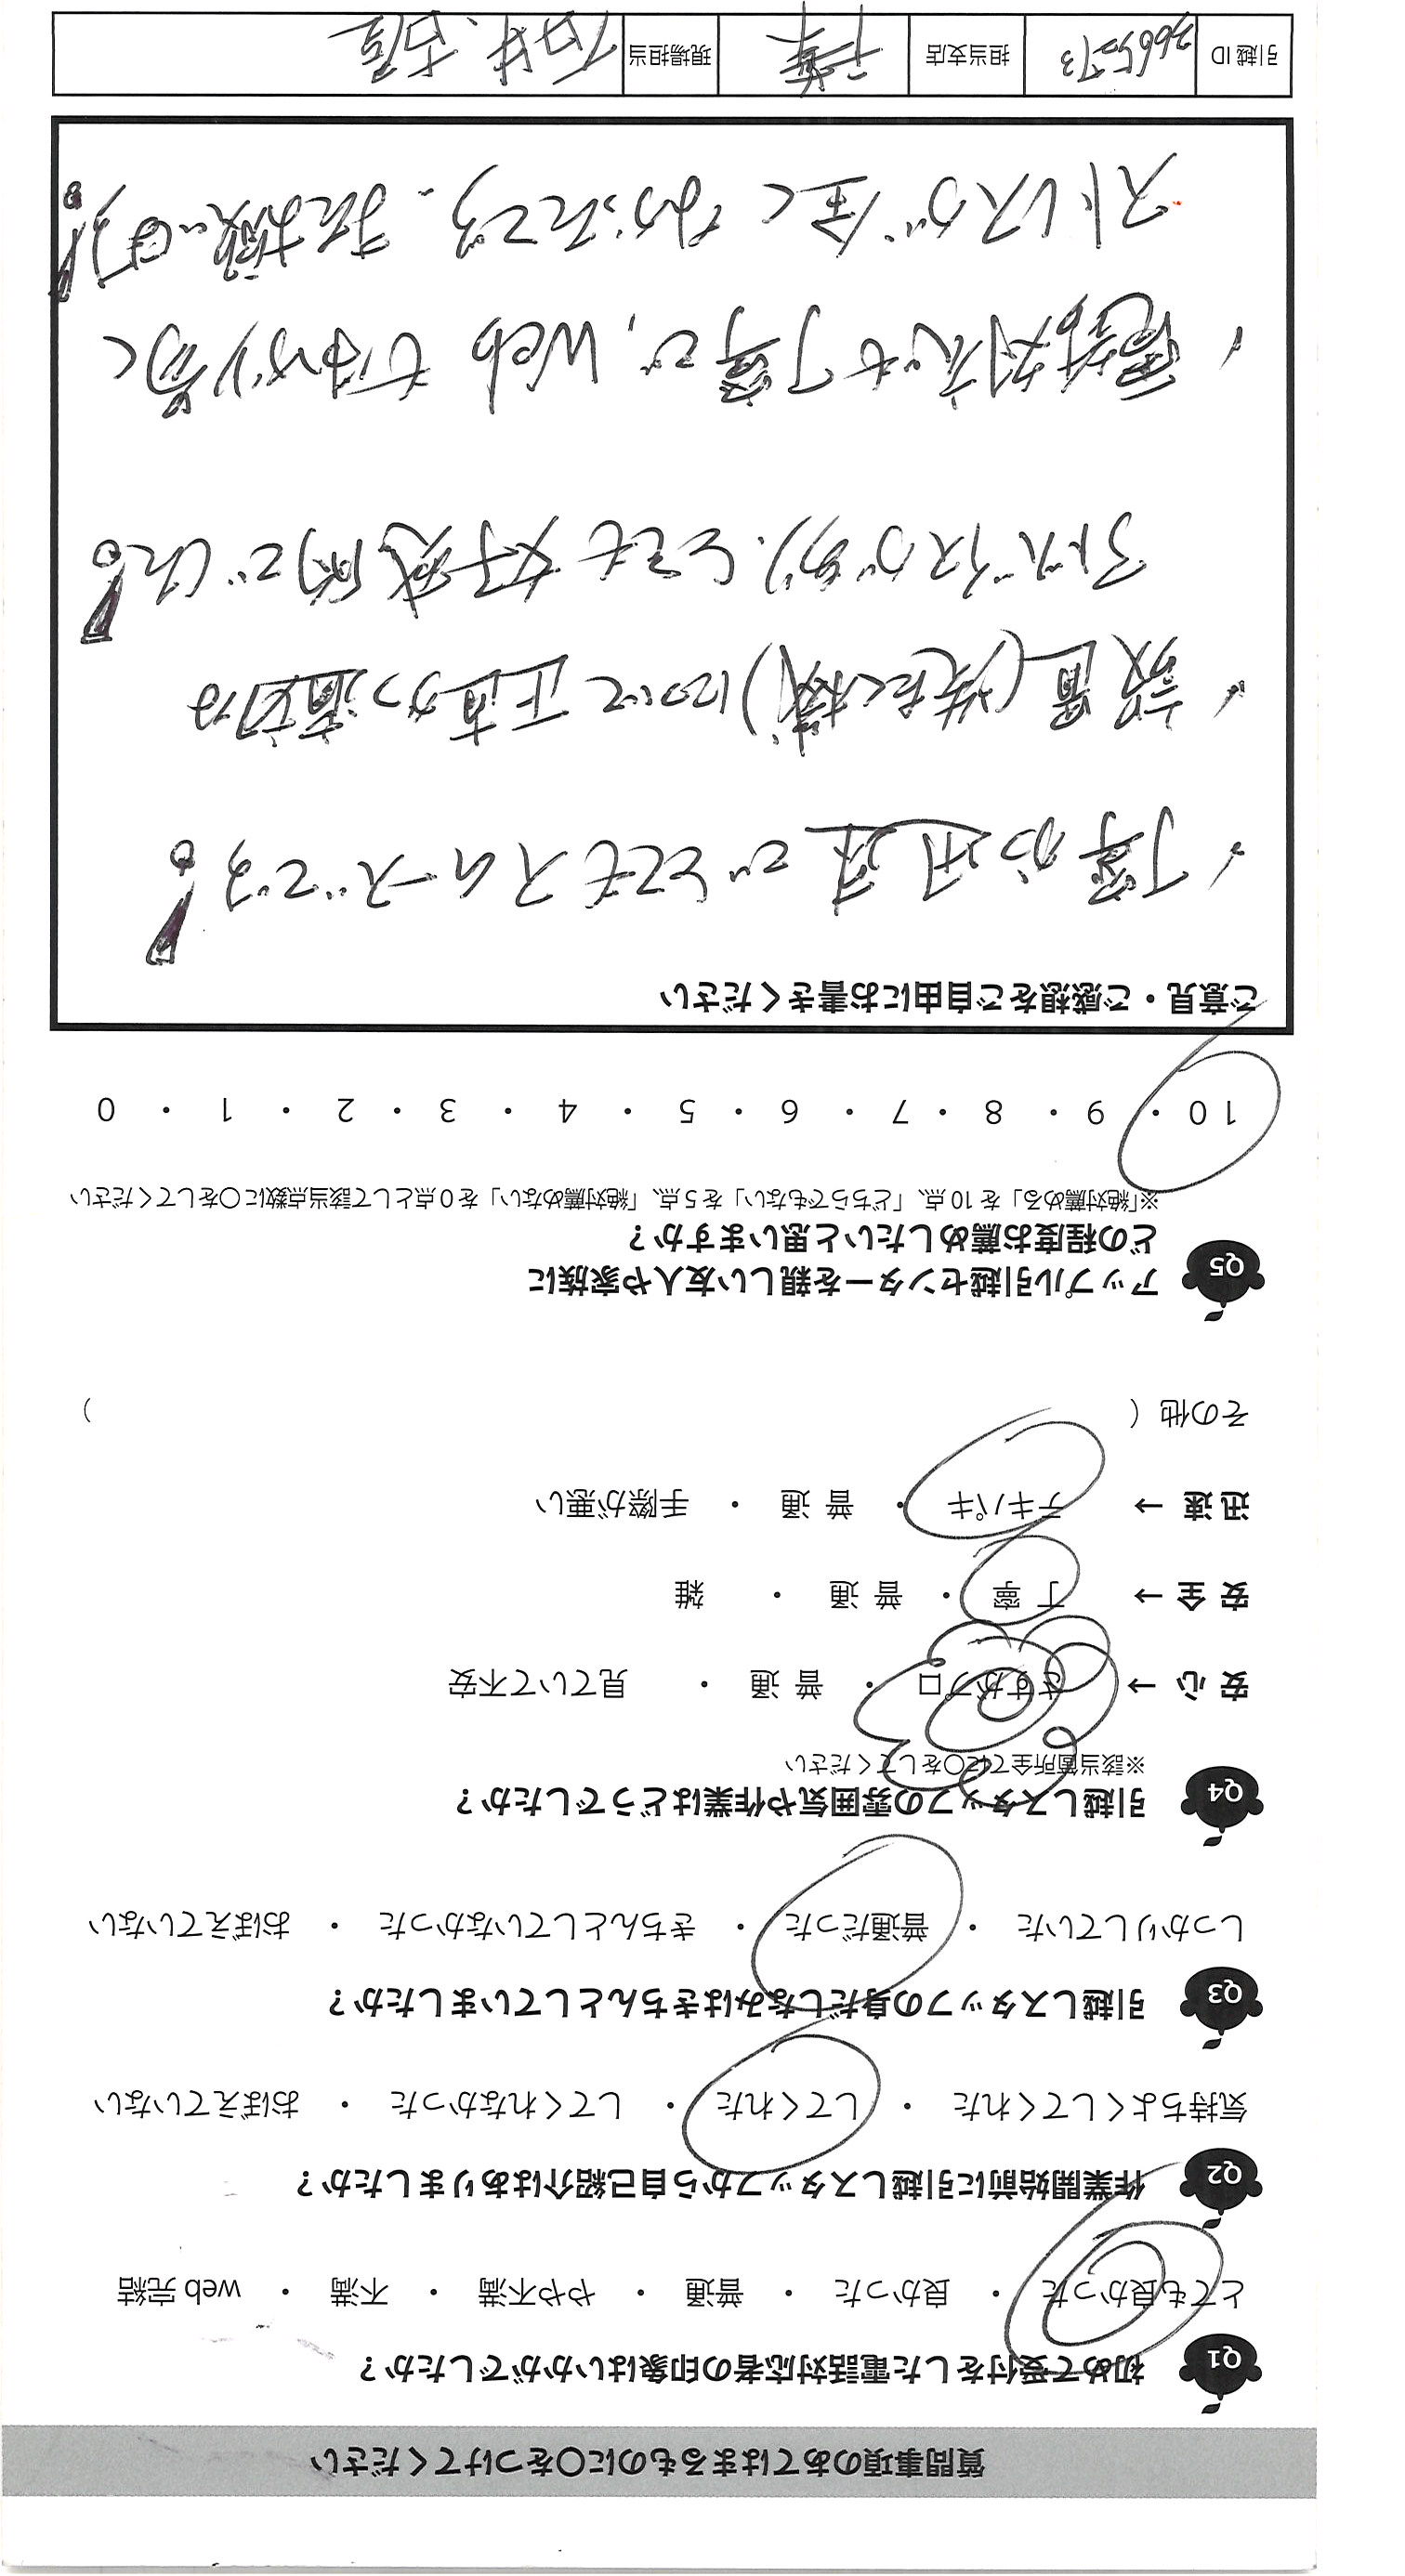 質問事項のあてはまるものに〇をつけてください
Q1 初めて受付をした電話対応者の印象はいかがでしたか？
とても良かった ・ 良かった ・ 普通 ・ やや不満 ・ 不満 ・ web 完結
Q2 作業開始前に引越しスタッフから自己紹介はありましたか？
気持ちよくしてくれた ・ してくれた ・ してくれなかった ・ おぼえていない
Q3 引越しスタッフの身だしなみはきちんとしていましたか？
しっかりしていた ・ 普通だった ・ きちんとしていなかった ・ おぼえていない
Q4 引越しスタッフの雰囲気や作業はどうでしたか？
※該当箇所全てに〇をしてください
安 心 → さすがプロ ・ 普 通 ・ 見ていて不安
安 全 → 丁 寧 ・ 普 通 ・ 雑
迅 速 → テキパキ ・ 普 通 ・ 手際が悪い
その他（ ）
Q5 アップル引越センターを親しい友人や家族に
どの程度お薦めしたいと思いますか？
※「絶対薦める」を 10 点、「どちらでもない」を 5 点、「絶対薦めない」を 0 点として該当点数に〇をしてください
10 ・ 9 ・ 8 ・ 7 ・ 6 ・ 5 ・ 4 ・ 3 ・ 2 ・ 1 ・ 0
ご意見・ご感想をご自由にお書きください
丁寧かつ迅速でとてもスムーズです!
設置(洗たく機)について正直かつ適切な
アドバイスがあり、とても好感的でした!
電話対応も丁寧で、Webも分かり易く
ストレスが全くなかったです。また機会があれば!
引越 ID 担当支店 千葉 現場担当 石井